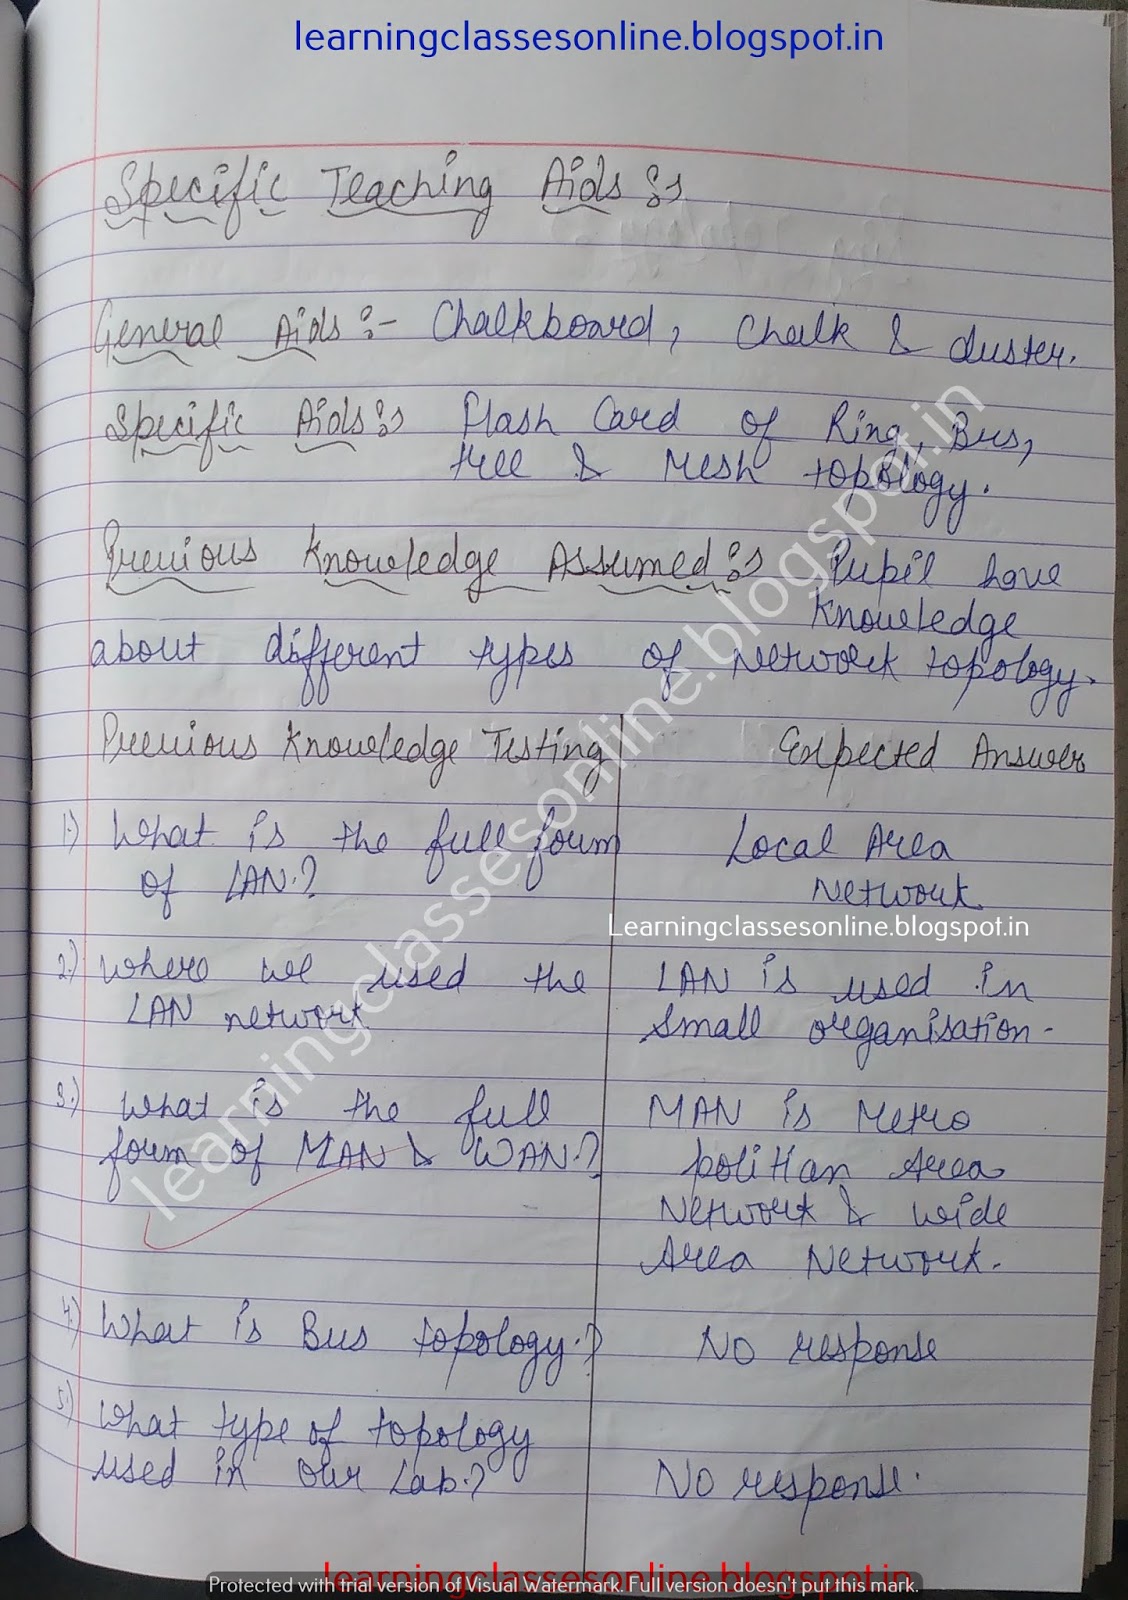 learningclassesonline.blogspot.in
Specific Teaching Aids :-
General Aids :- Chalkboard, Chalk & duster.
Specific Aids :- Flash Card of Ring, Bus,
tree & mesh topology.
Previous Knowledge Assumed :- Pupil have
Knowledge
about different types of Network topology.
Previous Knowledge Testing Expected Answer
1.) What is the full form Local Area
of LAN.? Network
Learningclassesonline.blogspot.in
2.) where we used the LAN is used in
LAN network small organisation-
3.) What is the full MAN is Metro
form of MAN & WAN.? polittan Area
Network & wide
Area Network.
4.) What is Bus topology.? No response
5.) What type of topology
used in our Lab.? No response.
learningclassesonline.blogspot.in
learningclassesonline.blogspot.in
Protected with trial version of Visual Watermark. Full version doesn't put this mark.